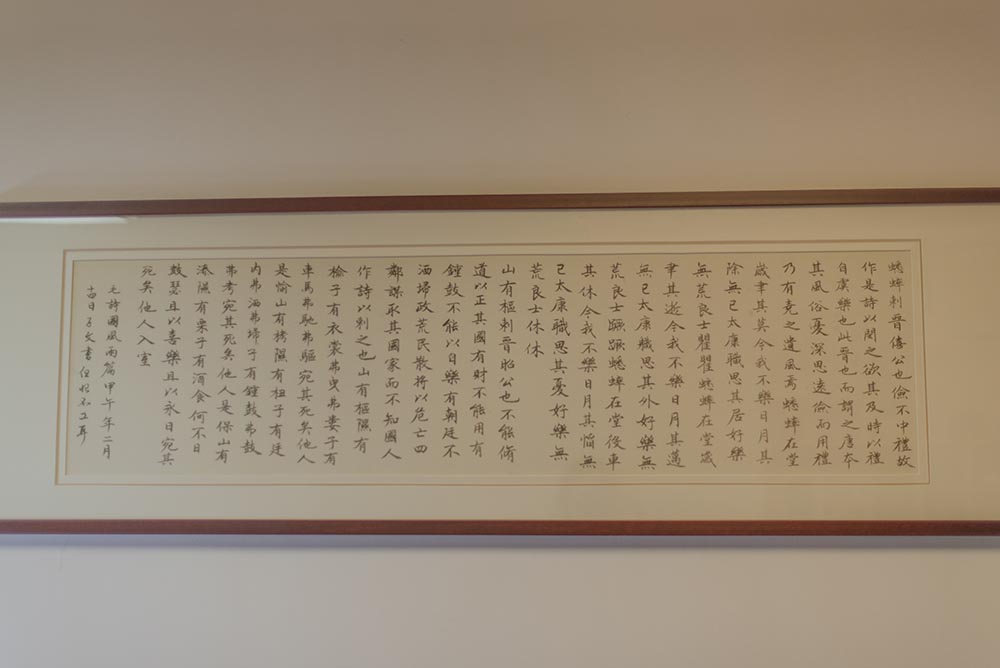 蟋蟀刺晉僖公也儉不中禮故
作是詩以閔之欲其及時以禮
自虞樂也此晉也而謂之唐本
其風俗憂深思遠儉而用禮
乃有堯之遺風焉蟋蟀在堂
歲聿其莫今我不樂日月其
除無已太康職思其居好樂
無荒良士瞿瞿蟋蟀在堂歲
聿其逝今我不樂日月其邁
無已太康職思其外好樂無
荒良士蹶蹶蟋蟀在堂役車
其休今我不樂日月其慆無
已太康職思其憂好樂無
荒良士休休
山有樞刺晉昭公也不能脩
道以正其國有財不能用有
鍾鼓不能以自樂有朝廷不
洒埽政荒民散將以危亡四
鄰謀取其國家而不知國人
作詩以刺之也山有樞隰有
榆子有衣裳弗曳弗婁子有
車馬弗馳弗驅宛其死矣他人
是愉山有栲隰有杻子有廷
內弗洒弗埽子有鍾鼓弗鼓
弗考宛其死矣他人是保山有
漆隰有栗子有酒食何不日
鼓瑟且以喜樂且以永日宛其
死矣他人入室
毛詩國風兩篇甲午年二月
十四日子文書